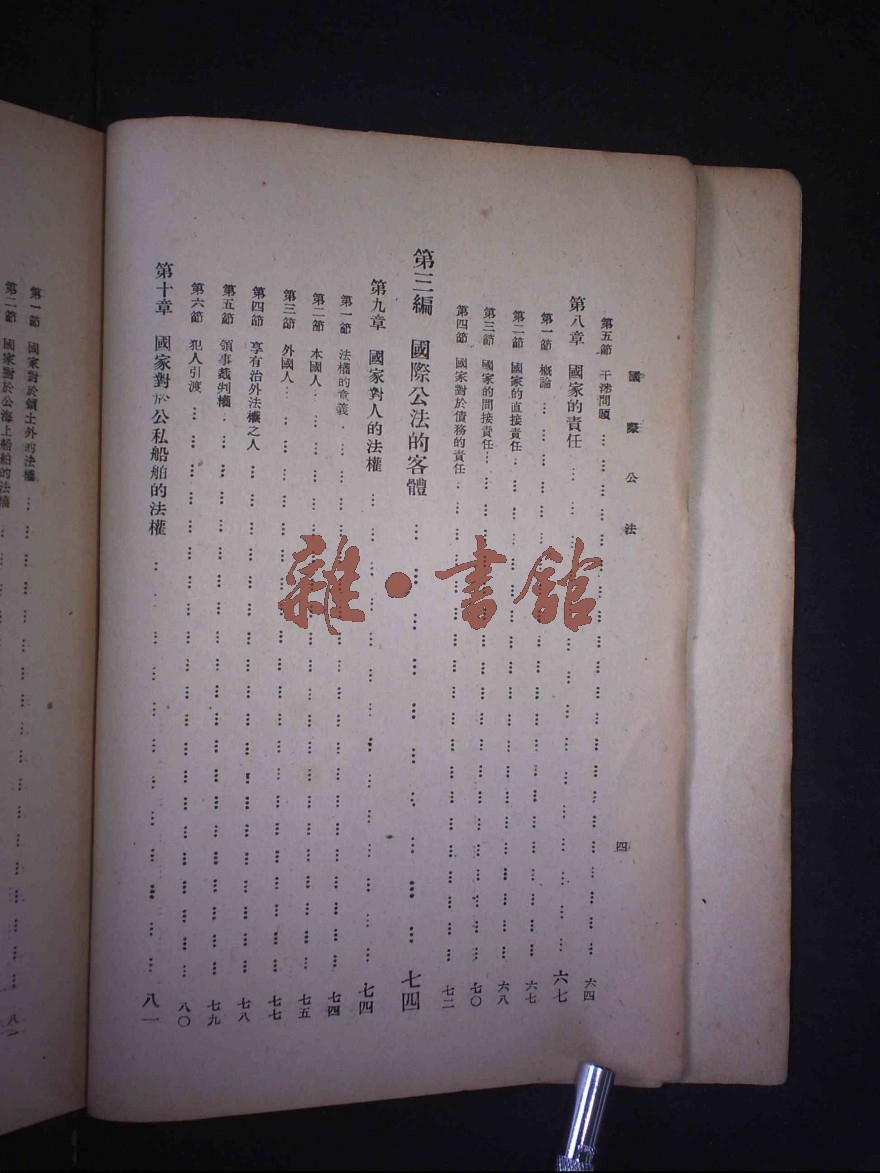 國際公法
四
第五節 干涉問題 六四
第八章 國家的責任 六七
第一節 概論 六七
第二節 國家的直接責任 六八
第三節 國家的間接責任 七〇
第四節 國家對於債務的責任 七二
第三編 國際公法的客體 七四
第九章 國家對人的法權 七四
第一節 法權的意義 七四
第二節 本國人 七五
第三節 外國人 七七
第四節 享有治外法權之人 七八
第五節 領事裁判權 七九
第六節 犯人引渡 八〇
第十章 國家對於公私船舶的法權 八一
第一節 國家對於領土外的法權 八一
第二節 國家對於公海上船舶的法權
雜·書館